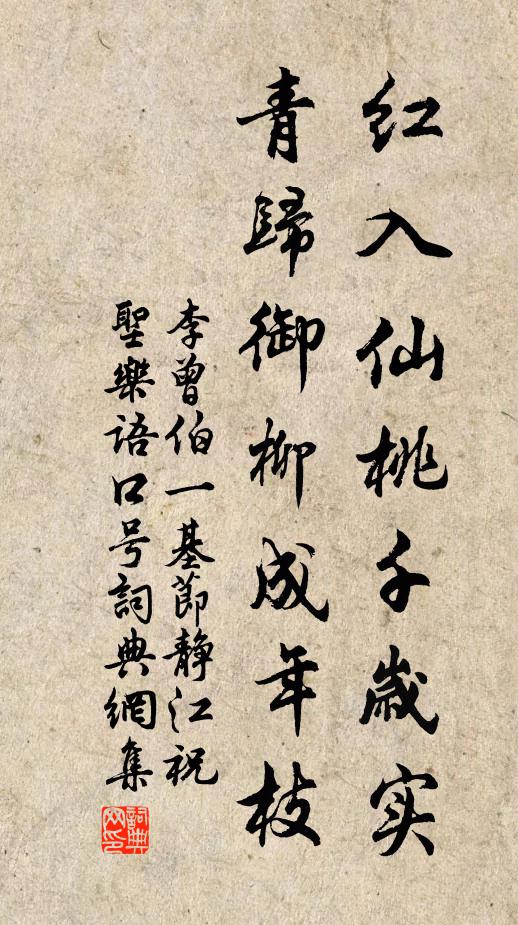 红入仙桃千歳实
青歸御柳成年枝
李曾伯一基節静江祝
聖樂语口号詞典網集
詞典网印